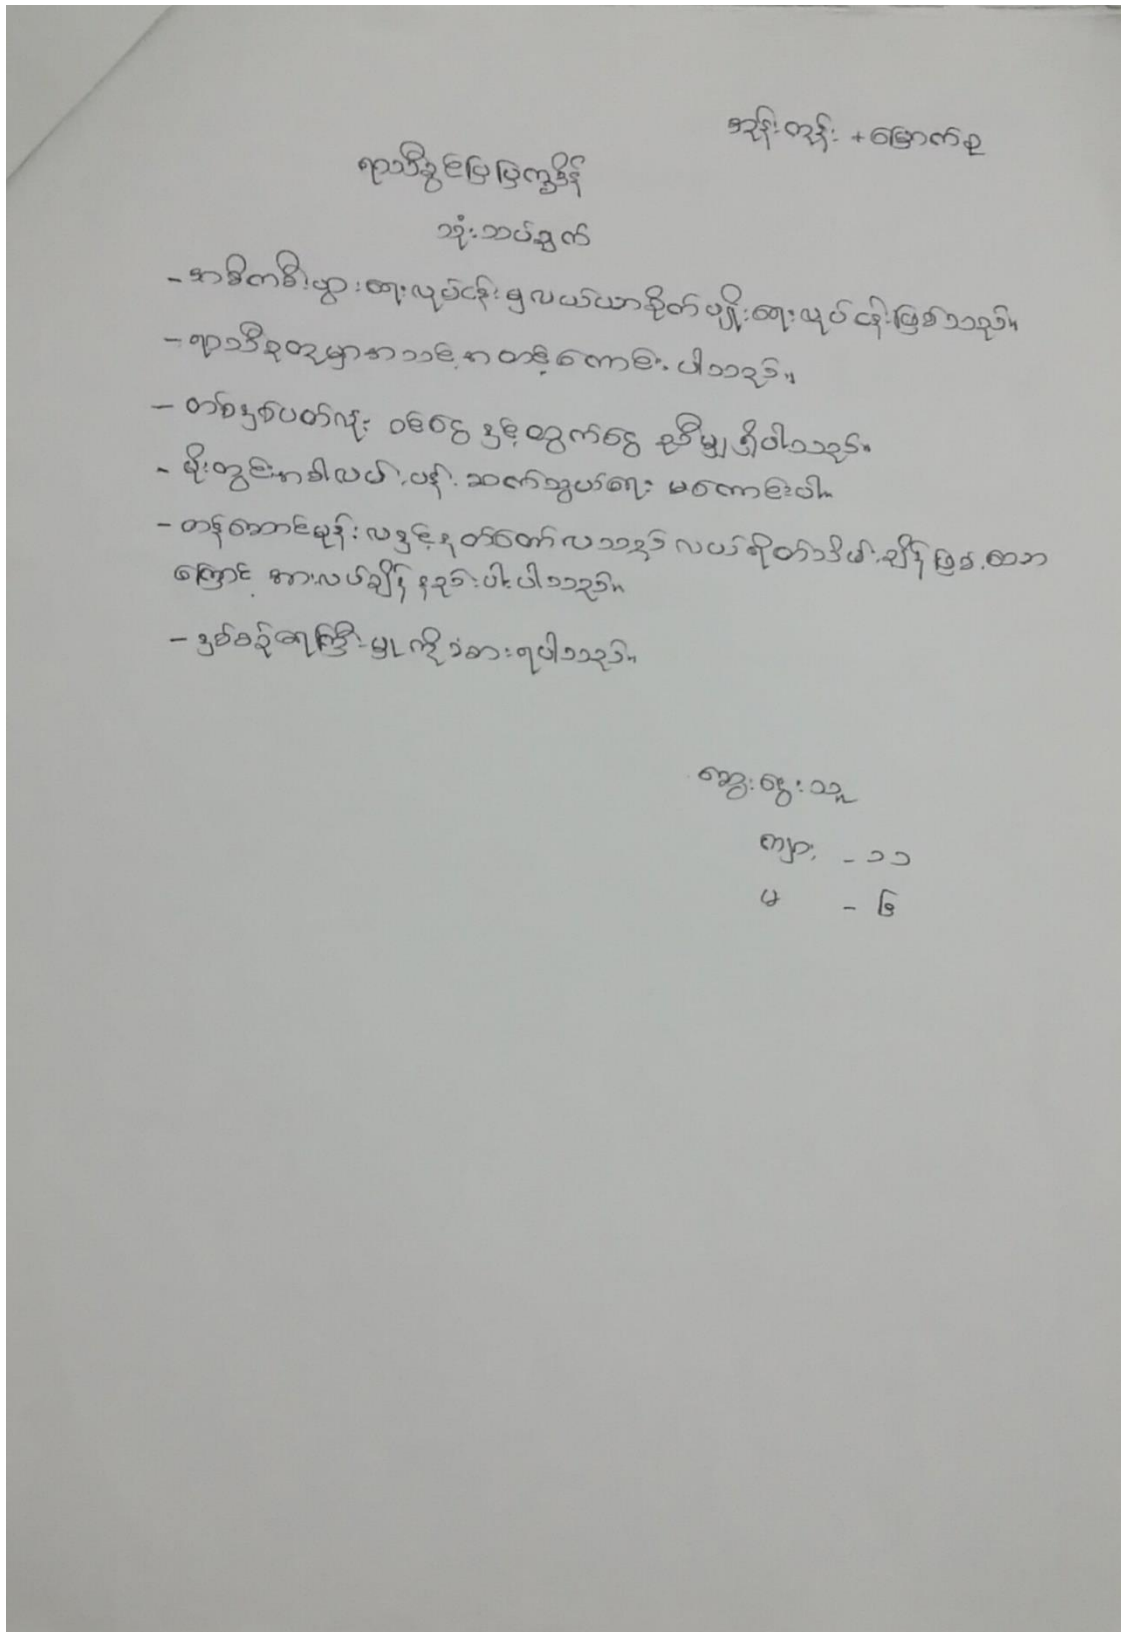 အုန်းတုန်း + မြောက်စု
ရာသီခွင်ပြပြက္ခဒိန်
သုံးသပ်ချက်
- အဓိကစီးပွားရေးလုပ်ငန်းမှာ လယ်ယာစိုက်ပျိုးရေးလုပ်ငန်းဖြစ်သည်။
- ရာသီဥတုမှာ အသင့်အတင့်ကောင်းပါသည်။
- တစ်နှစ်ပတ်လုံး ဝင်ငွေနှင့်ထွက်ငွေ ညီမျှရှိပါသည်။
- မိုးတွင်းအခါလမ်းပန်းဆက်သွယ်ရေး မကောင်းပါ။
- တန်ဆောင်မုန်းလနှင့်နတ်တော်လသည် လယ်ရိတ်သိမ်းချိန်ဖြစ်သော
ကြောင့် အားလပ်ချိန်နည်းပါးပါသည်။
- နှစ်စဉ်ရေကြီးမှုကိုခံစားရပါသည်။
ဆွေးနွေးသူ
ကျား - ၁၁
မ - ၆